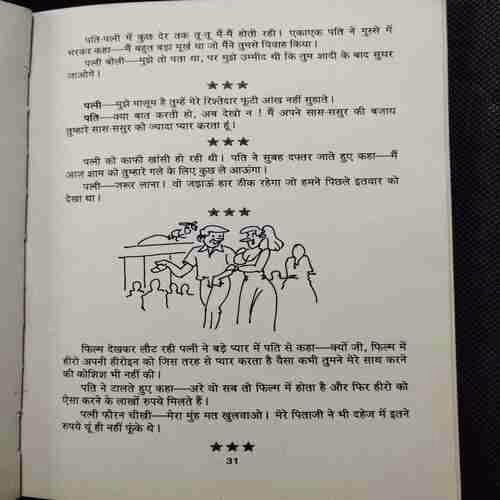 पति-पत्नी में कुछ देर तक तू-तू मैं-मैं होती रही। एकाएक पति ने गुस्से में
भरकर कहा—मैं बहुत बड़ा मूर्ख था जो मैंने तुमसे विवाह किया।
पत्नी बोली—मुझे तो पता था, पर मुझे उम्मीद थी कि तुम शादी के बाद सुधर
जाओगे।
★★★
पत्नी—मुझे मालूम है तुम्हें मेरे रिश्तेदार फूटी आंख नहीं सुहाते।
पति—क्या बात करती हो, अब देखो न ! मैं अपने सास-ससुर की बजाय
तुम्हारे सास-ससुर को ज्यादा प्यार करता हूं।
★★★
पत्नी को काफी खांसी हो रही थी। पति ने सुबह दफ्तर जाते हुए कहा—मैं
आज शाम को तुम्हारे गले के लिए कुछ ले आऊंगा।
पत्नी—जरूर लाना। वो जड़ाऊ हार ठीक रहेगा जो हमने पिछले इतवार को
देखा था।
★★★
फिल्म देखकर लौट रही पत्नी ने बड़े प्यार में पति से कहा—क्यों जी, फिल्म में
हीरो अपनी हीरोइन को जिस तरह से प्यार करता है वैसा कभी तुमने मेरे साथ करने
की कोशिश भी नहीं की।
पति ने टालते हुए कहा—अरे वो सब तो फिल्म में होता है और फिर हीरो को
ऐसा करने के लाखों रुपये मिलते हैं।
पत्नी फौरन चीखी—मेरा मुंह मत खुलवाओ। मेरे पिताजी ने भी दहेज में इतने
रुपये यूं ही नहीं फूंके थे।
★★★
31